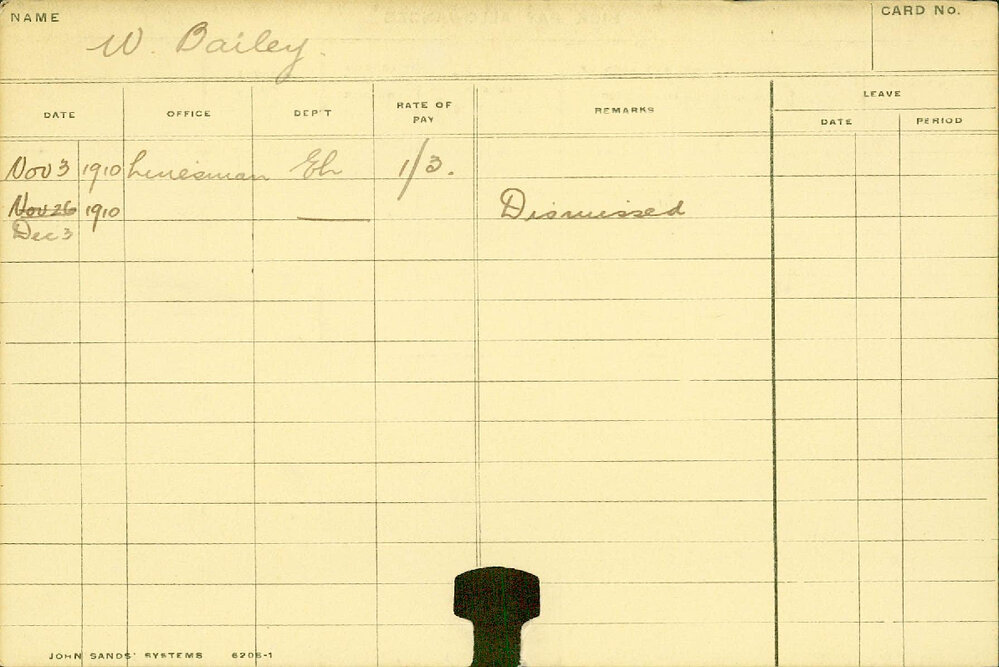 NAME
W. Bailey.
CARD No.
DATE OFFICE DEP'T RATE OF PAY REMARKS LEAVE
DATE PERIOD
Nov 3 1910 Linesman El 1/3.
Nov 26 1910 —— Dismissed
Dec 3
JOHN SANDS' SYSTEMS 6206-1